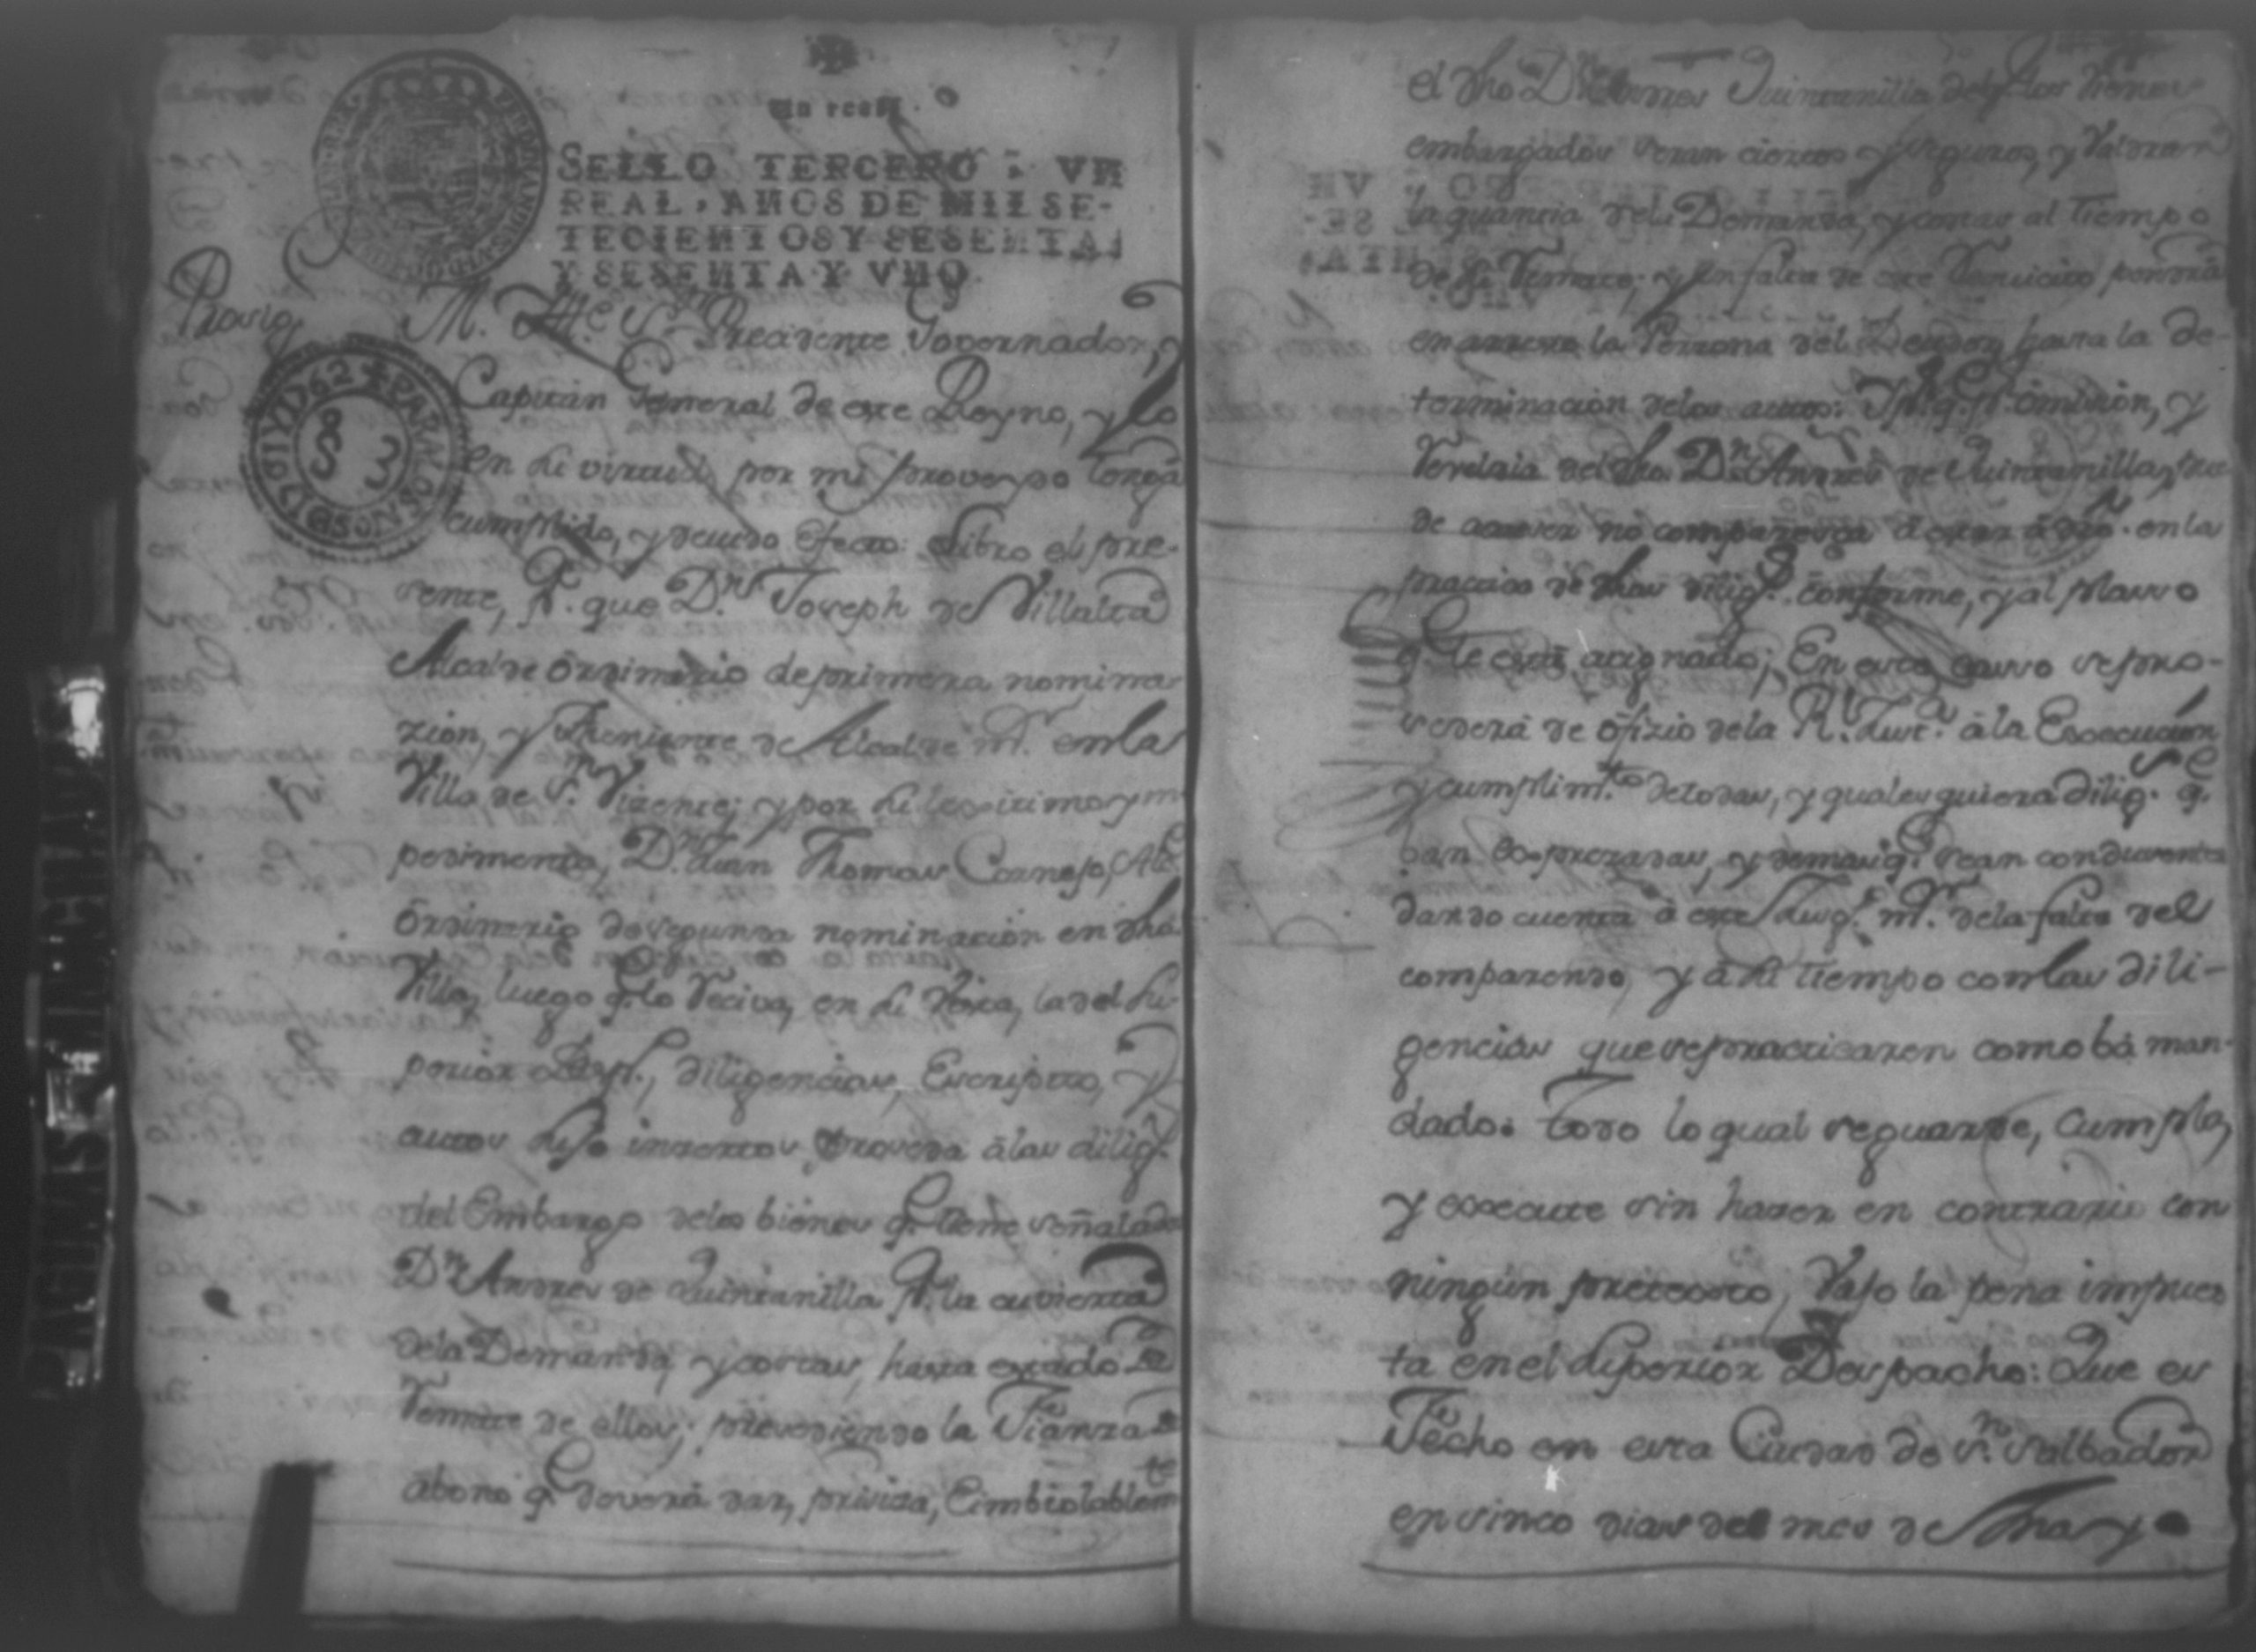 Un real.
SELLO TERCERO, VN
REAL, AÑOS DE MIL SE-
TECIENTOS Y SESENTA,
Y SESENTA Y VNO.
PARA LOS AÑOS DI 1762
M. Iltre Sr. Precidente Governador, y
Capitán General de este Reyno, y
en su virtud, por mi proveydo tenga
cumplido, y devido efecto: Libro el pre-
sente, pa. que Dn. Joseph de Villalta
Alcalde ôrdinario de primera nomina-
zión, y Theniente de Alcalde mr. en la
Villa de Sn. Vizente; y por su lexitimo ym
pedimento, Dn. Juan Thomas Cornejo, Alc
ôrdinario de segunda nominación en dha
Villa, luego qe. lo reciva, en su vista, la del su-
perior Desp., diligencias, Escripto, y
autos suso insertos, Proveda â las dilig.
del Embargo delos biénes qe. tiene señalado
Dn. Andres de Quintanilla pa. la cuvierta
dela Demanda, y cortas, hasta estado de
Remate de ellos; precediendo la Fianza de
abono qe. deverá dar, preciza, é imbiolablemte
el dho Dn. Andres Quintanilla de qe. los viénes
embargados seran ciertos y seguros, y valdran
la quantia dela Demanda, y costas al tiempo
de su Remate; y en falta de este requicito pondrá
en arresto la Perzona del Deudor, hasta la de-
terminación delos autos: Y si pr. omición, y
revelaia del dho. Dn. Andres de Quintanilla,
de acaver no comparesca â estar â dro. en la
practica de dhas dilig. conforme, y al plasso
qe. le está asignado; En este casso se pro-
sederá de ôfizio dela Rl. Just. â la Esecución
y cumplimto. de todas, y quales quiera dilig. qe.
ban exprezadas, y demas qe. sean conduzentes
dando cuenta â este Jusg. mr. dela falta del
comparendo, y â su tiempo con las dili-
gencias que se practicaren como bá man-
dado: todo lo qual se guarde, cumpla,
y execute sin hazer en contrario con
ningun pretexto, vajo la pena impues
ta en el superior Despacho: Que es
Fecho en esta Ciudad de Sn. Salbador
en sinco dias del mes de May